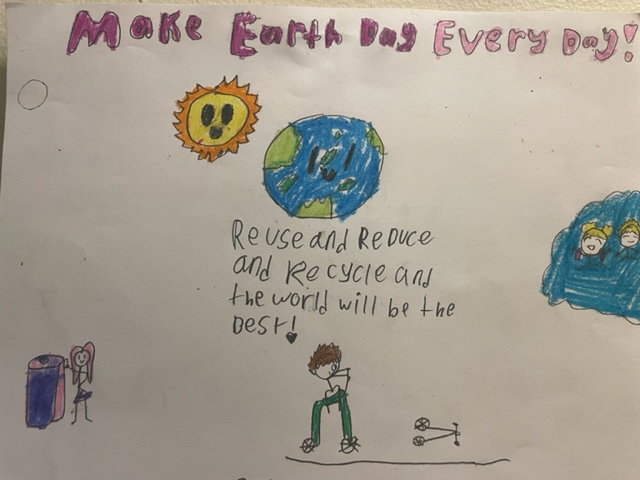 Make Earth Day Every Day!
Reuse and Reduce
and Recycle and
the world will be the
Best!